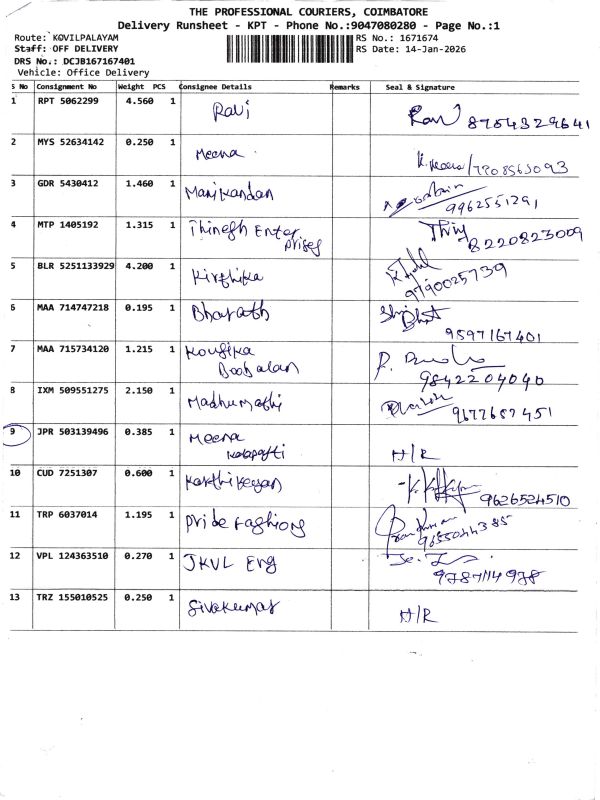 THE PROFESSIONAL COURIERS, COIMBATORE
Delivery Runsheet - KPT - Phone No.:9047080280 - Page No.:1
Route: KOVILPALAYAM
RS No.: 1671674
Staff: OFF DELIVERY
RS Date: 14-Jan-2026
DRS No.: DCJB167167401
Vehicle: Office Delivery
S No Consignment No Weight PCS Consignee Details Remarks Seal & Signature
1 RPT 5062299 4.560 1 Ravi Ravi 8754329641
2 MYS 52634142 0.250 1 Meena K. Meena/7208563093
3 GDR 5430412 1.460 1 Manikandan 9962551291
4 MTP 1405192 1.315 1 Thinesh Enter
prises 8220823009
5 BLR 5251133929 4.200 1 Kirthika 9790025739
6 MAA 714747218 0.195 1 Bharath
9597167401
7 MAA 715734120 1.215 1 Kousika
Boobalan 9842204040
8 IXM 509551275 2.150 1 Madhumathi 9677687451
9 JPR 503139496 0.385 1 Meena
H/R
10 CUD 7251307 0.600 1 Karthikeyan 9626524510
11 TRP 6037014 1.195 1 Pride Fashions
12 VPL 124363510 0.270 1 JKVL Eng
9787114978
13 TRZ 155010525 0.250 1 Sivakumar
H/R